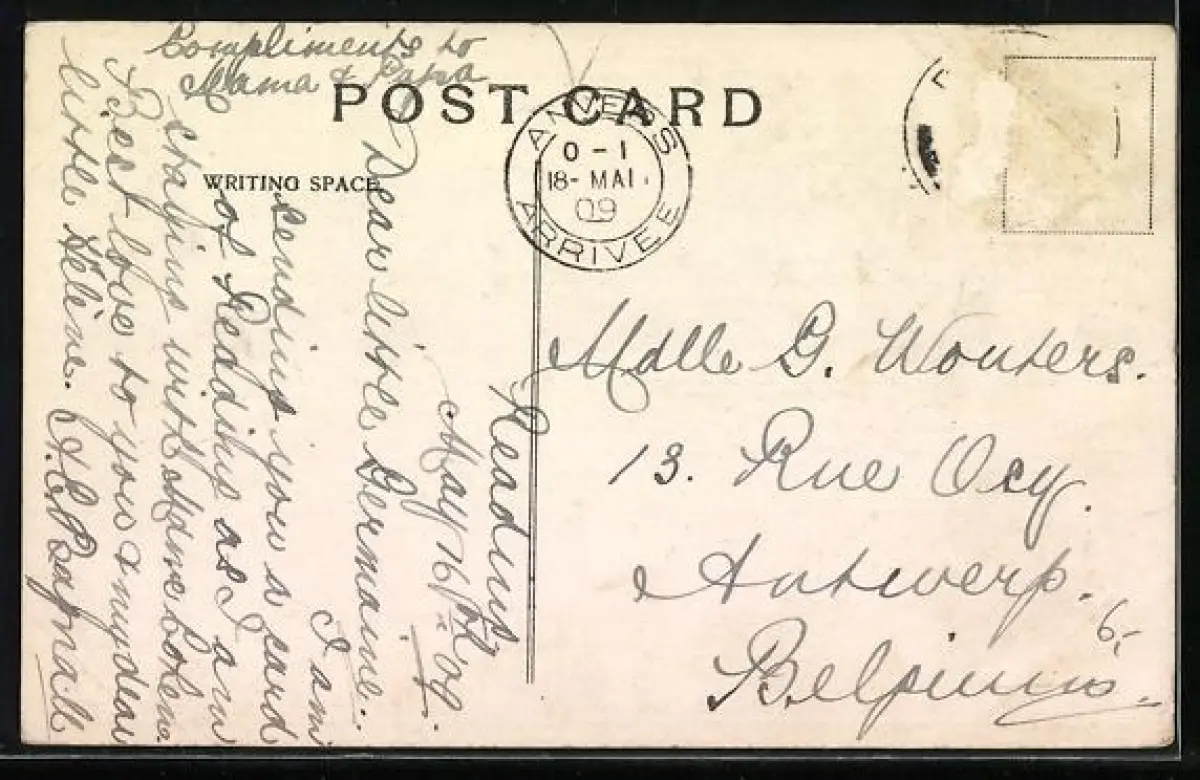 POST CARD
WRITING SPACE.
ANVERS
0 - 1
18 - MAI
09
ARRIVEE
Reading
May 16th 09.
Dear little Germaine.
I am
sending you a card
of Reading as I am
staying with Mme
Best love to you & my dear
little Hélène.
Compliments to
Mama & Papa
Mdlle G. Wouters.
13. Rue Osy.
Antwerp.
Belgium.
6,-